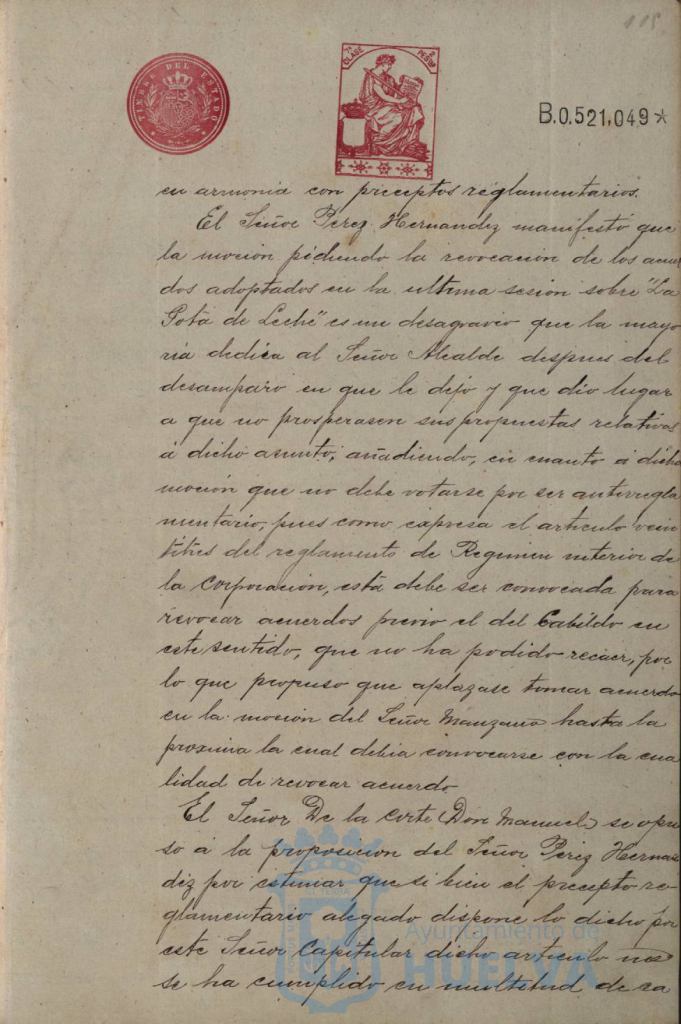 115
TIMBRE DEL ESTADO
7ª CLASE 2 PESETAS
B.0.521,049*
en armonia con preceptos reglamentarios.
El Señor Perez Hernandez manifestó que
la moción pidiendo la revocación de los acuer
dos adoptados en la ultima sesion sobre "La
Gota de Leche" es un desagravio que la mayo
ria dedica al Señor Alcalde despues del
desamparo en que le dejo y que dio lugar
a que no prosperasen sus propuestas relativas
á dicho asunto; añadiendo, en cuanto á dicha
moción que no debe votarse por ser antirregla
mentario, pues como expresa el articulo vein
titres del reglamento de Regimen interior de
la Corporación, está debe ser convocada para
revocar acuerdos previo el del Cabildo en
este sentido, que no ha podido recaer, por
lo que propuso que aplazase tomar acuerdo
en la moción del Señor Manzano hasta la
proxima la cual debia convocarse con la cua
lidad de revocar acuerdo
El Señor De la Corte (Don Manuel) se opu
so á la proposicion del Señor Perez Hernan
dez por estimar que si bien el precepto re-
glamentario alegado dispone lo dicho por
este Señor Capitular dicho articulo no
se ha cumplido en multitud de ca
Ayuntamiento de
HUELVA